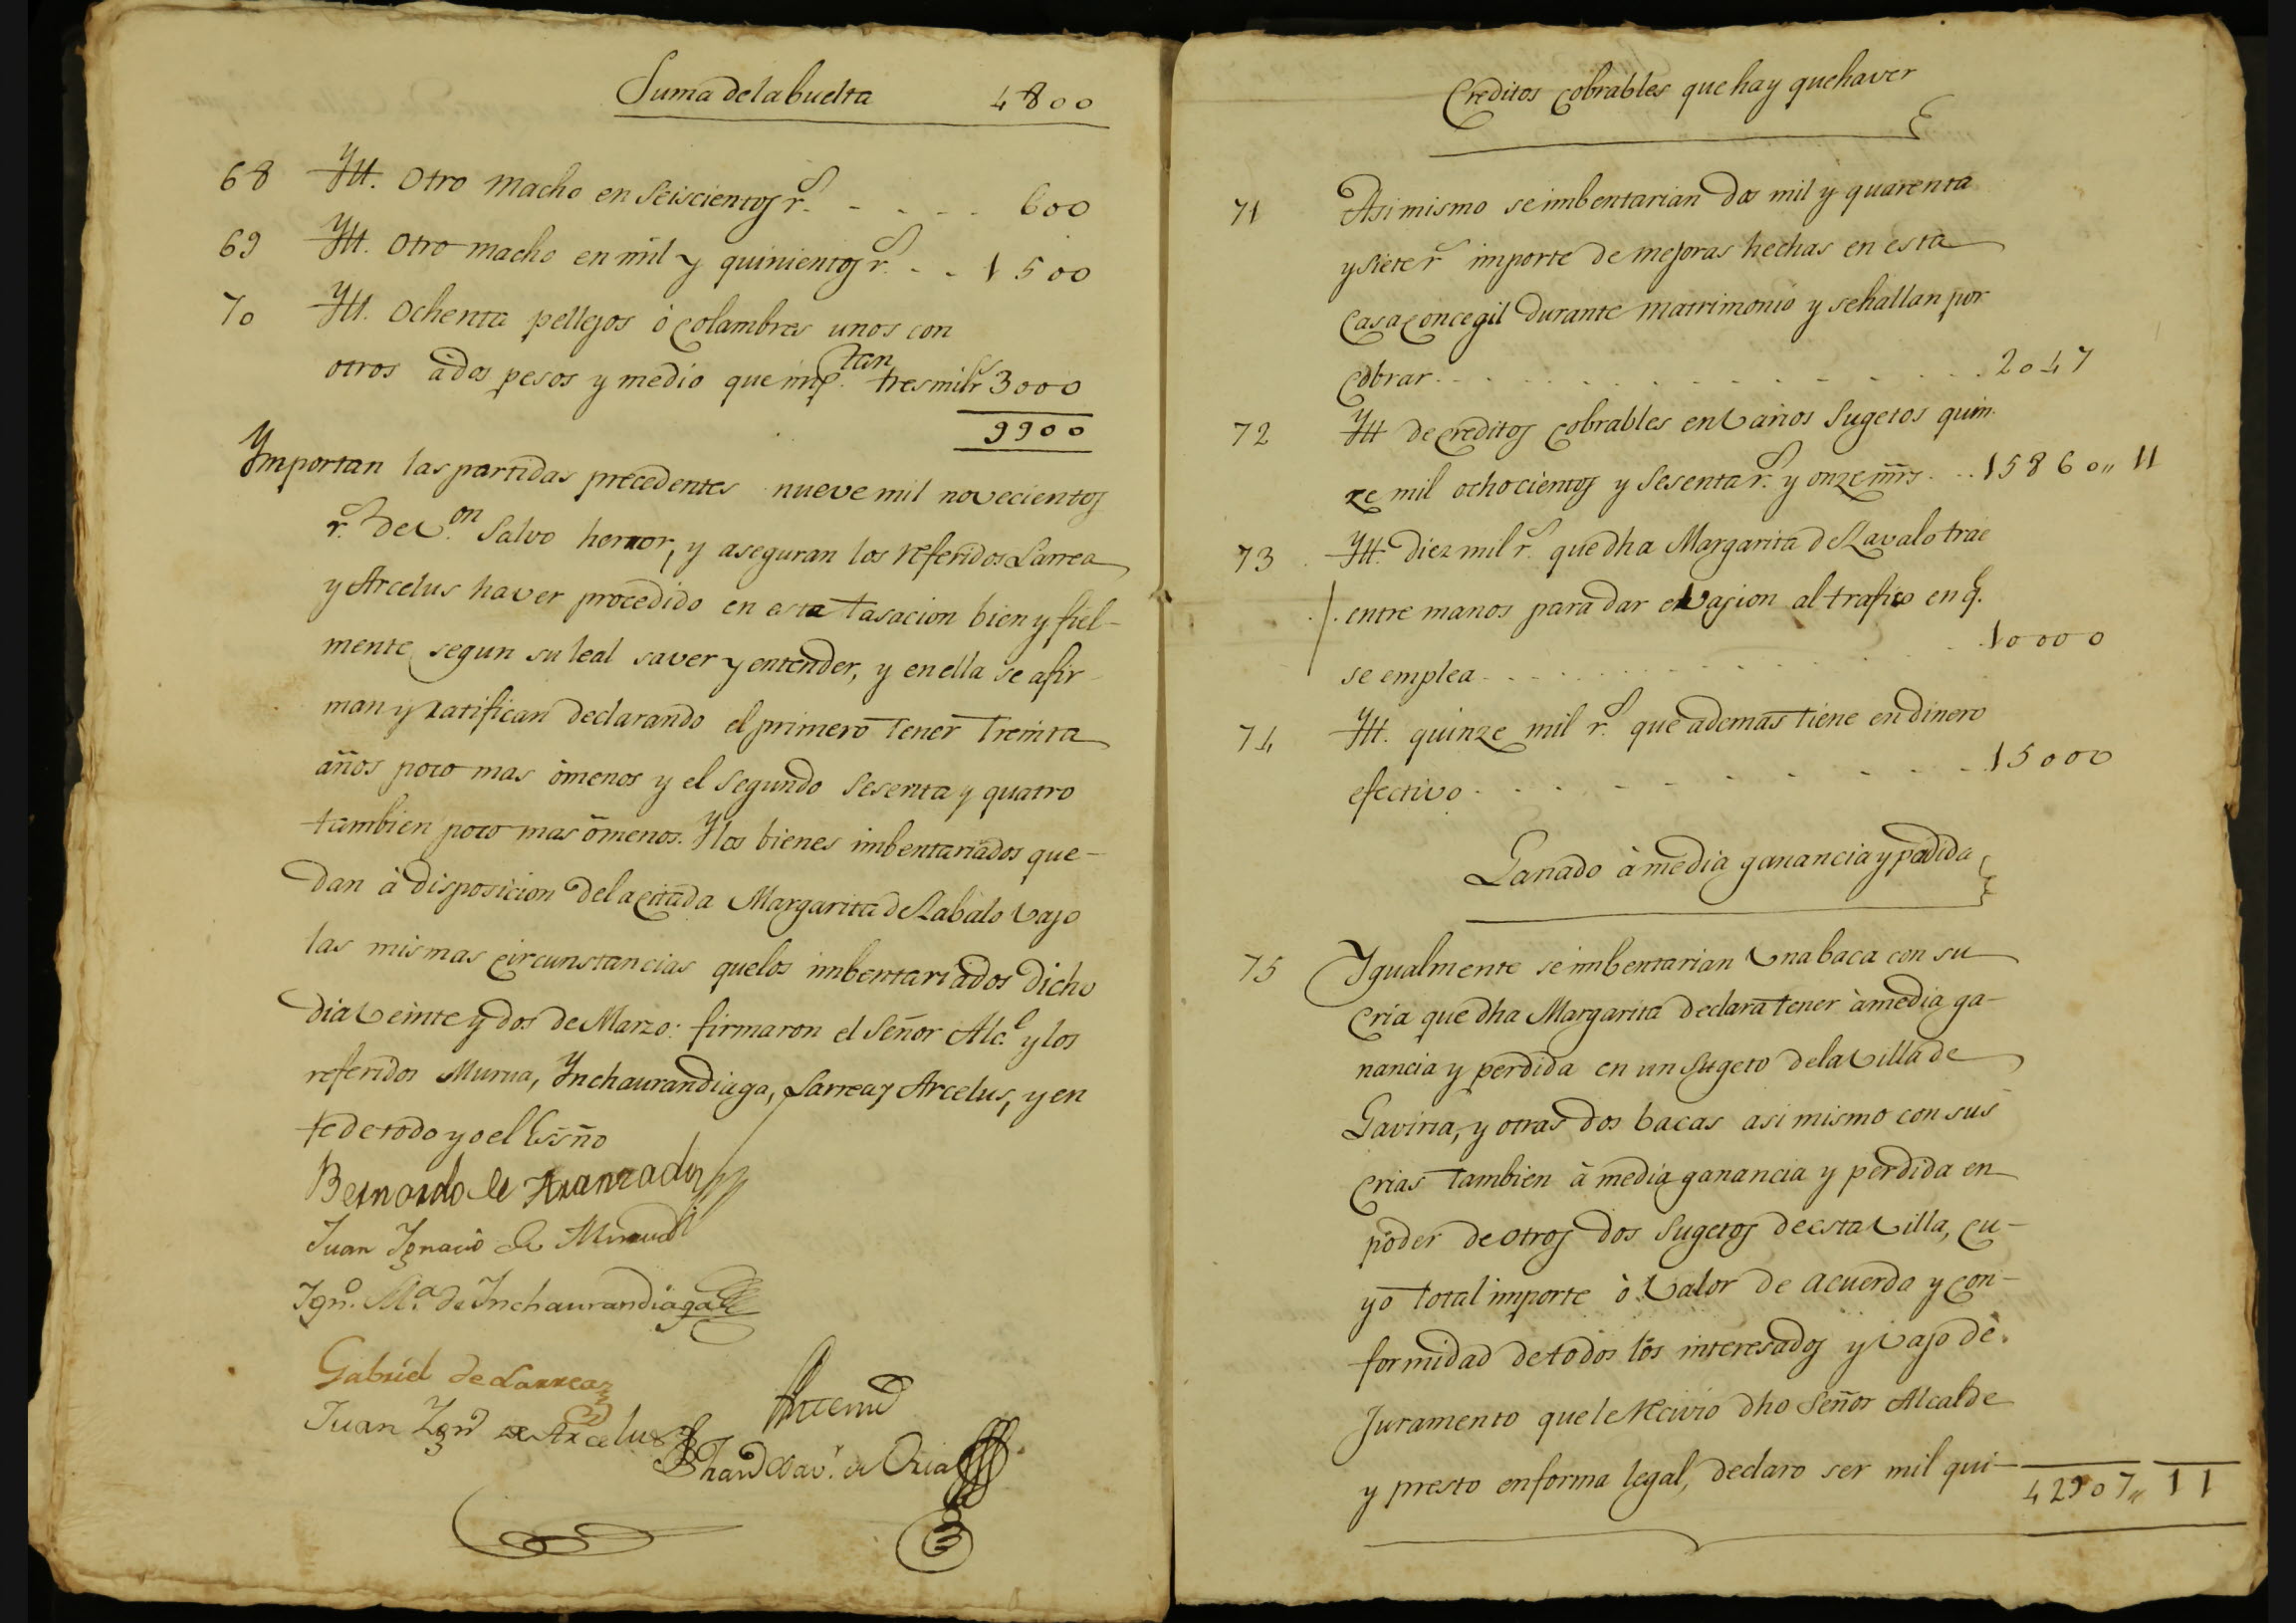 Suma de la buelta 4800
68 Ytt. Otro macho en seiscientos r.s - - - - 600
69 Ytt. Otro macho en mil y quinientos r.s - - 1500
70 Ytt. Ochenta pellejos ò colambres unos con
otros à dos pesos y medio que imp.tan tres mil r.s 3000
9900
Ymportan las partidas precedentes nueve mil novecientos
r.s de V.on salvo herror, y aseguran los referidos Larrea
y Arcelus haver procedido en esta tasacion bien y fiel-
mente segun su leal saver y entender, y en ella se afir-
man y ratifican declarando el primero tener treinta
años poco mas ò menos y el segundo sesenta y quatro
tambien poco mas ò menos. Y los bienes imbentariados que-
dan à disposicion de la citada Margarita de Zabalo vajo
las mismas circunstancias que los imbentariados dicho
dia veinte y dos de Marzo: firmaron el Señor Alc.e y los
referidos Murua, Ynchaurandiaga, Larrea y Arcelus, y en
fe de todo yo el Essño
Bernardo de Aranzadi
Juan Ignacio de Murua
Ign.o M.a de Inchaurandiaga
Gabriel de Larrea
Juan Ign.o de Arcelus
Ante mi
Xav.r de Oria
Creditos cobrables que hay que haver
71 Asi mismo se imbentarian dos mil y quarenta
y siete r.s importe de mejoras hechas en esta
Casa concegil durante matrimonio y se hallan por
cobrar - - - - - - - - - - 2047
72 Ytt de creditos cobrables en varios sugetos quin-
ze mil ochocientos y sesenta r.s y onze mrs. . . 15860,, 11
73 Ytt. Diez mil r.s que dha Margarita de Zavalo trae
entre manos para dar evasion al trafico en q.
se emplea - - - - - - - 10000
74 Ytt. quinze mil r.s que ademas tiene en dinero
efectivo - - - - - - - - 15000
Ganado à media ganancia y perdida
75 Ygualmente se imbentarian una baca con su
cria que dha Margarita declara tener à media ga-
nancia y perdida en un sugeto de la villa de
Gaviria, y otras dos bacas asi mismo con sus
crias tambien à media ganancia y perdida en
poder de otros dos sugetos de esta villa, cu-
yo total importe ò valor de acuerdo y con-
formidad de todos los interesados y vajo de
Juramento que le recivio dho Señor Alcalde
y presto en forma legal, declaro ser mil qui-
42907,, 11